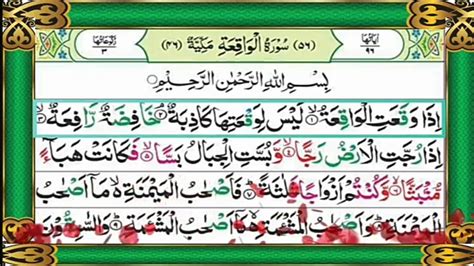 اٰیاتها ۹٦ (۵٦) سُوْرَةُ الْوَاقِعَةِ مَكِّیَّةٌ (۴٦) رکوعاتها ۳
بِسْمِ اللهِ الرَّحْمٰنِ الرَّحِیْمِ
اِذَا وَقَعَتِ الْوَاقِعَةُ ۙ لَیْسَ لِوَقْعَتِهَا كَاذِبَةٌ ۘ خَافِضَةٌ رَّافِعَةٌ ۙ
اِذَا رُجَّتِ الْاَرْضُ رَجًّا ۙ وَّبُسَّتِ الْجِبَالُ بَسًّا ۙ فَكَانَتْ هَبَآءً
مُّنْۢبَثًّا ۙ وَّكُنْتُمْ اَزْوَاجًا ثَلٰثَةً ؕ فَاَصْحٰبُ الْمَیْمَنَةِ ۙ۬ مَاۤ اَصْحٰبُ
الْمَیْمَنَةِ ؕ وَاَصْحٰبُ الْمَشْـَٔمَةِ ۙ۬ مَاۤ اَصْحٰبُ الْمَشْـَٔمَةِ ؕ وَالسّٰبِقُوْنَ